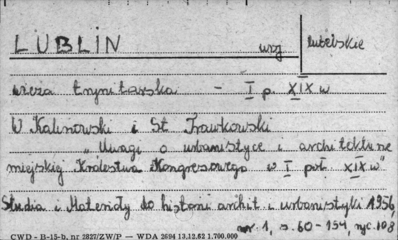 LUBLIN woj lubelskie
wieża trynitarska - I p. XIX w
W Kalinowski i St. Trawkowski
„Uwagi o urbanistyce i architekturze
miejskiej Królestwa Kongresowego w I poł. XIX w"
Studia i Materiały do historii archit i urbanistyki 1956,
nr. 1, s. 60-154, ryc. 108
CWD - B-15-b, nr 2827/ZW/P — WDA 2694 13.12.62 1.700.000